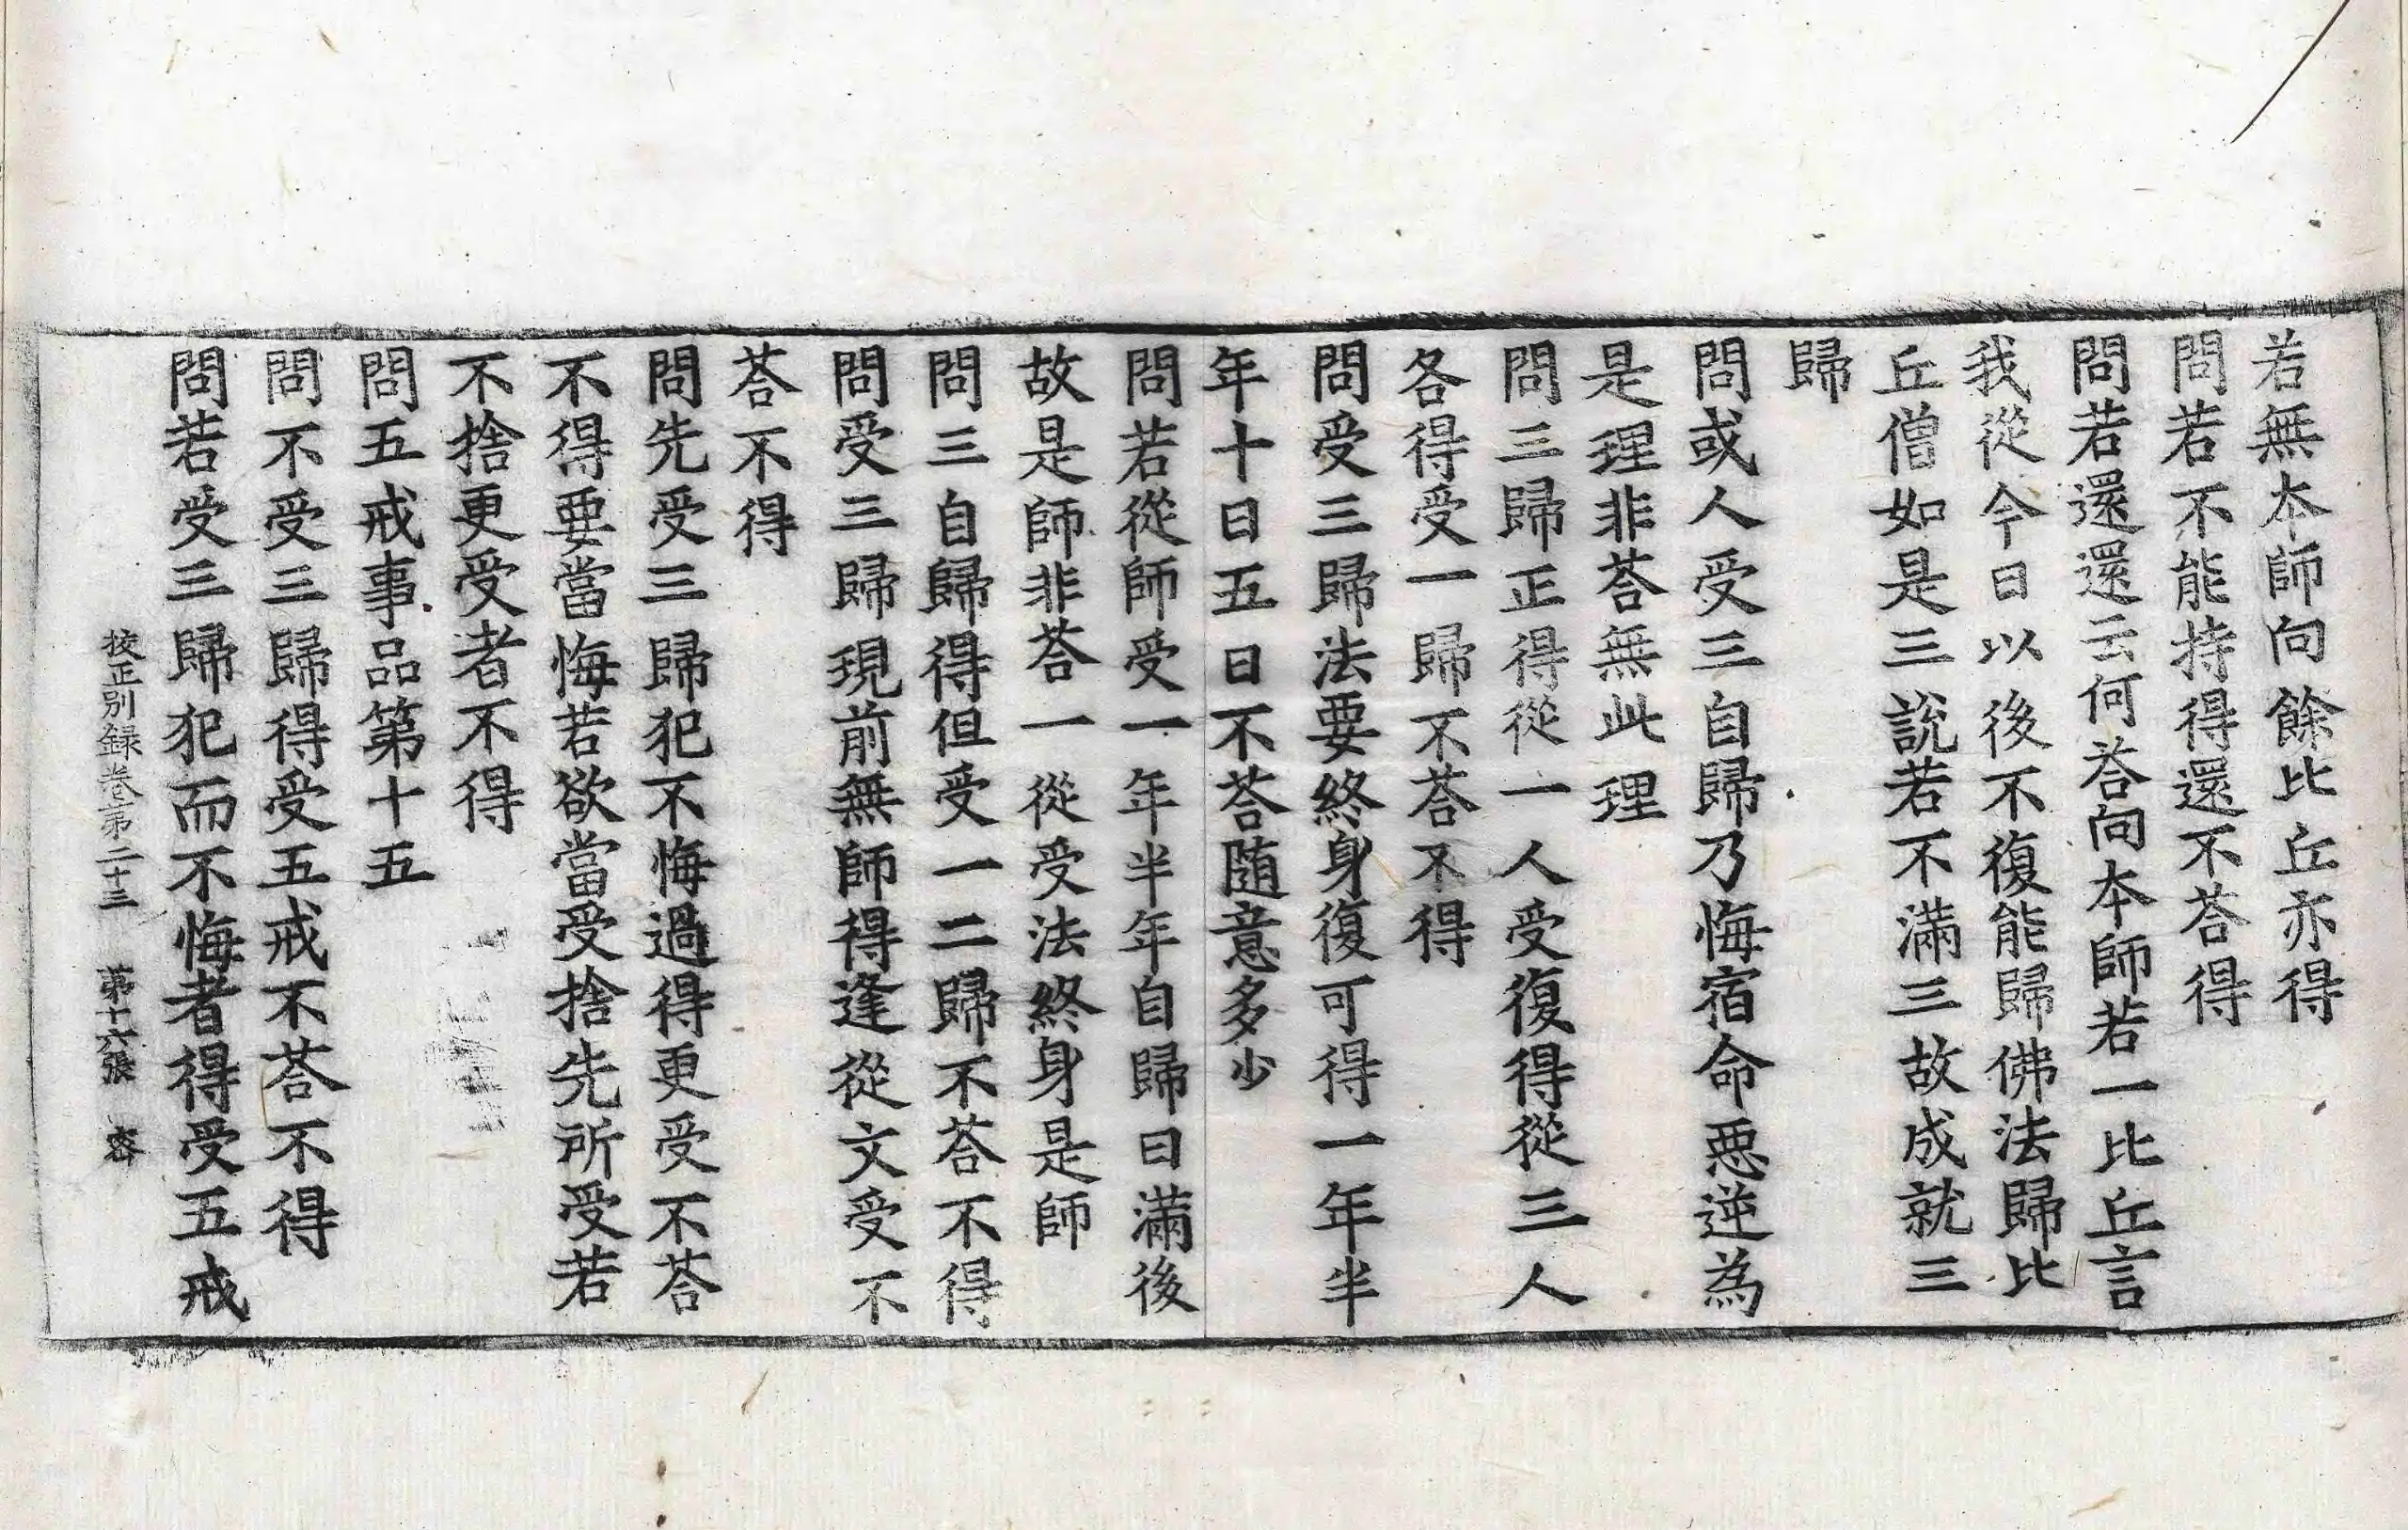 若無本師向餘比丘亦得
問若不能持得還不荅得
問若還還云何荅向本師若一比丘言
我從今日以後不復能歸佛法歸比
丘僧如是三說若不滿三故成就三
歸
問或人受三自歸乃悔宿命惡逆為
是理非荅無此理
問三歸正得從一人受復得從三人
各得受一歸不荅不得
問受三歸法要終身復可得一年半
年十日五日不荅随意多少
問若從師受一年半年自歸日滿後
故是師非荅一從受法終身是師
問三自歸得但受一二歸不荅不得
問受三歸現前無師得逢從文受不
荅不得
問先受三歸犯不悔過得更受不荅
不得要當悔若欲當受捨先所受若
不捨更受者不得
問五戒事品第十五
問不受三歸得受五戒不荅不得
問若受三歸犯而不悔者得受五戒
挍正別録卷苐二十三 苐十六張